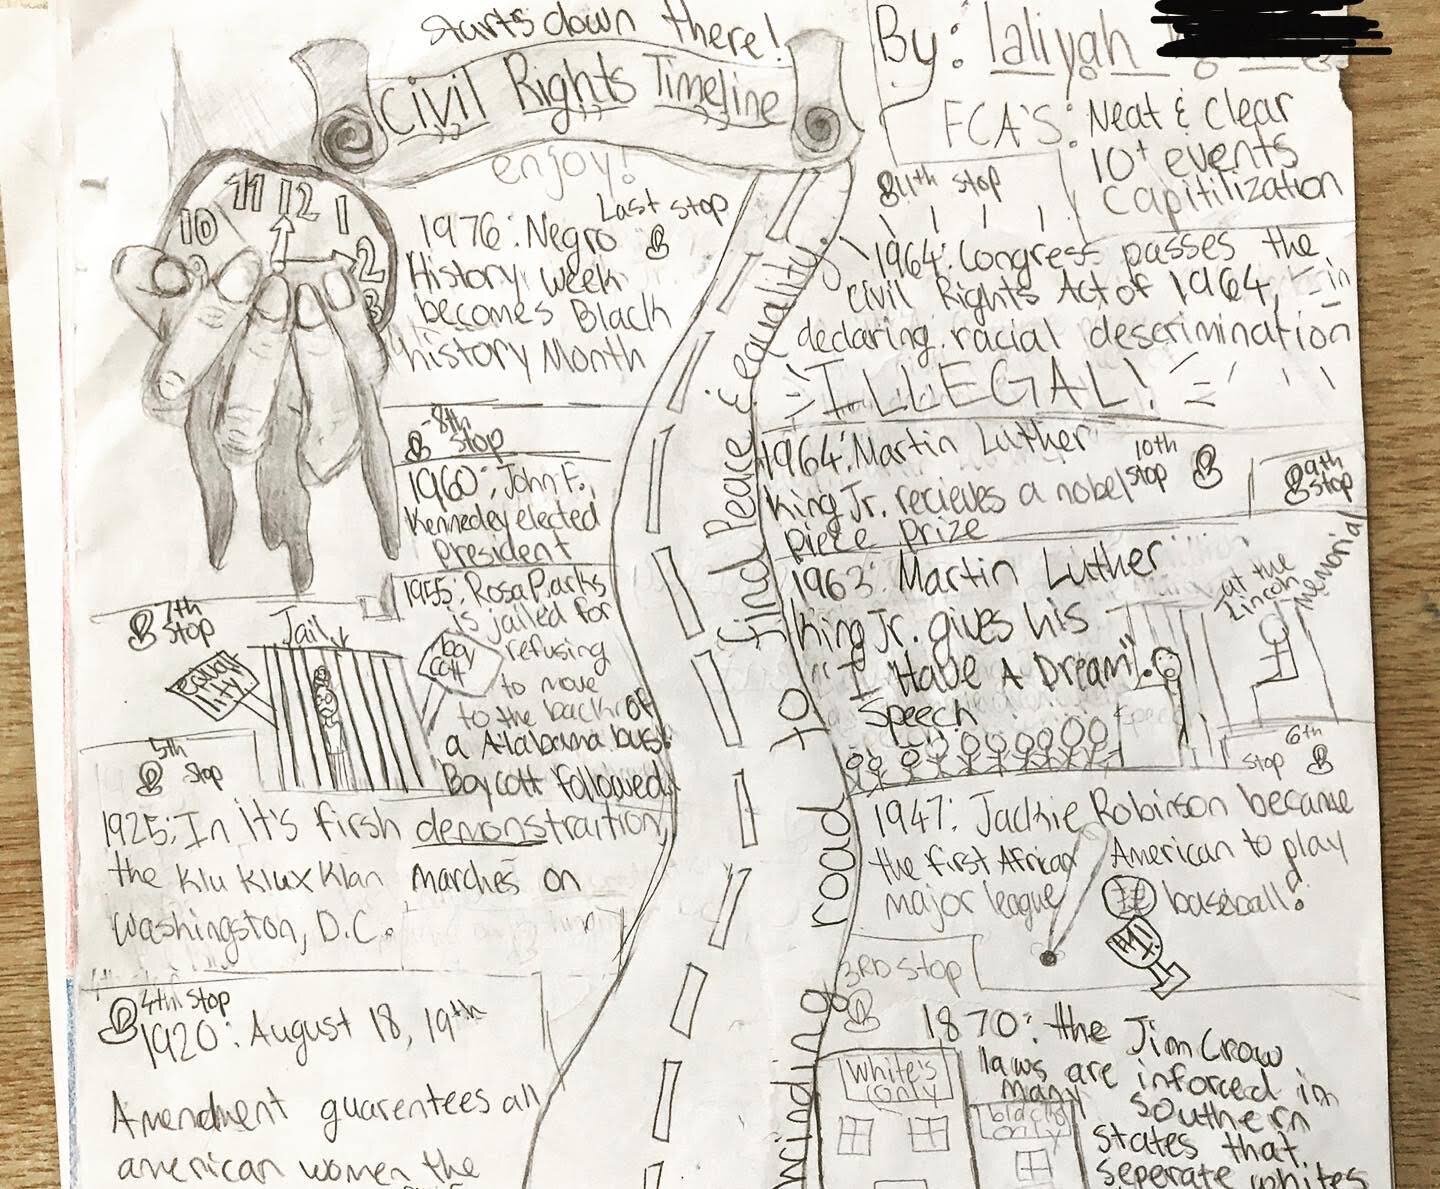 Starts down there!
Civil Rights Timeline
enjoy!
By: Ialiyah
FCA's: Neat & clear
10+ events
Capitilization
11 12 1
10 2
9 3
Last stop
1976: Negro
History week
becomes Black
history Month
11th stop
1964: Congress passes the
civil Rights Act of 1964, in
declaring racial descrimination
ILLEGAL!
8th
stop
1960: John F.
Kennedey elected
president
1964: Martin Luther
King Jr. recieves a nobel
piece prize
10th
stop
9th
stop
1963: Martin Luther
King Jr. gives his
"I Have A Dream".
Speech
at the
Lincoln
Memorial
7th
stop
Jail
equal
ity
boy
cott
1955: Rosa Parks
is jailed for
refusing
to move
to the back of
a Alabama bus.
Boycott followed
6th
stop
1947: Jackie Robinson became
the first African American to play
major league baseball!
#1!
5th
stop
1925: In it's firsh demonstraition,
the Klu Klux Klan marches on
Washington, D.C.
4th stop
1920: August 18, 19th
Amendment guarentees all
american women the
3RD stop
1870: the Jim Crow
laws are inforced in
many southern
states that
seperate whites
White's
only
blacks
only
winding road to find Peace & equality.